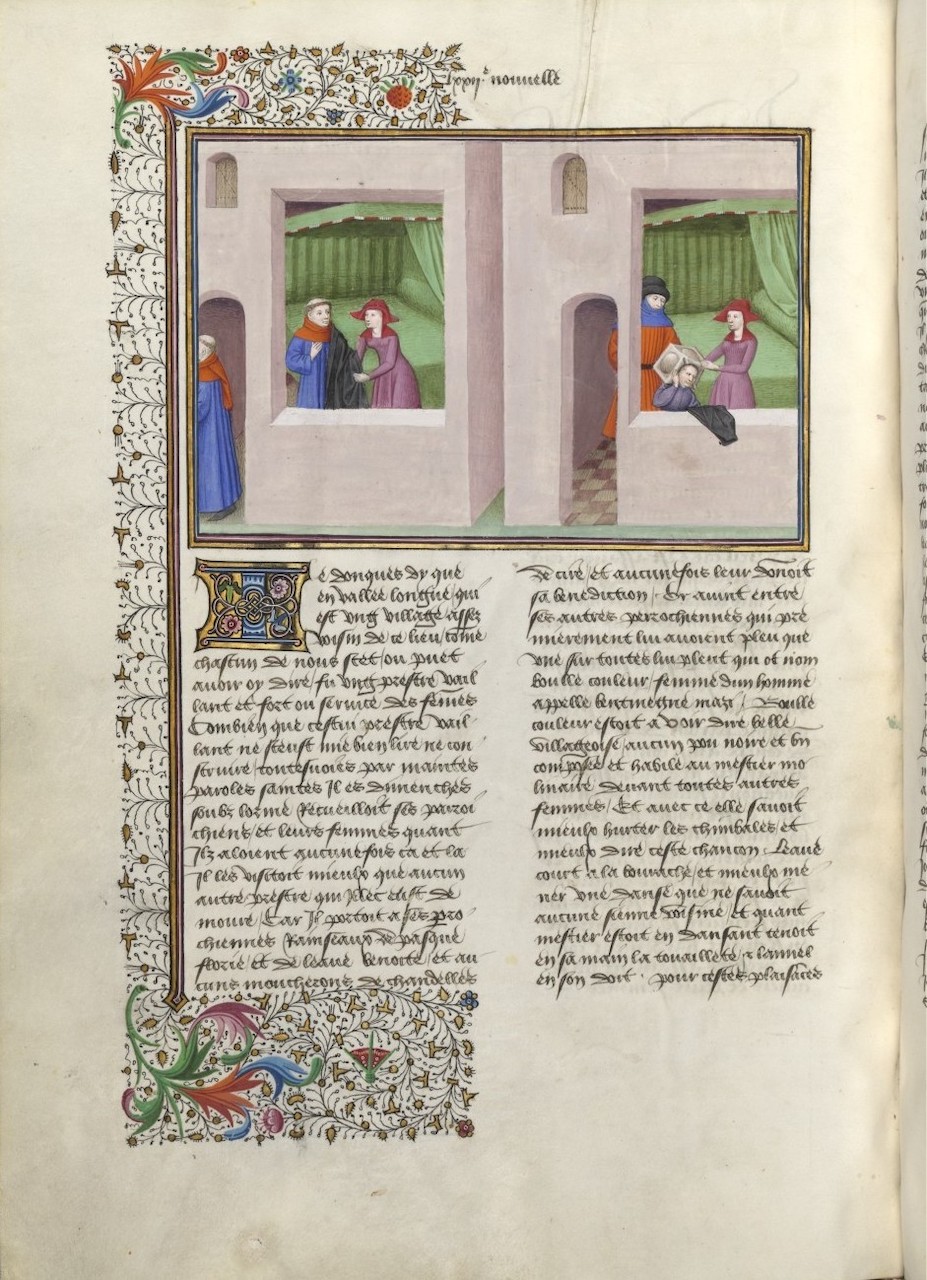 lxxij.e nouuelle
Ie donques dy que
en vallee longue qui
est vng village assez
voisin de ce lieu come
chascun de nous scet ou puet
auoir oy dire fu vng prestre vail
lant et fort ou seruice des femes
Combien que cestui prestre vail
lant ne sceust mie bien lire ne con
struire toutesuoies par maintes
paroles saintes Il es dimenches
soubz lorme Recueilloit ses parroi
chiens et leurs femmes quant
Ilz aloient aucunefois ca et la
Il les visitoit mieulx que aucun
autre prestre qui Illec
moure Car Il portoit a ses pro
chiennes Rainseaux de pasque
florie et de leaue benoite et au
cuns moucherons de chandelles
de cire et aucunefois leur donoit
sa benediction Or auint entre
ses autres perrochiennes qui pre
mierement lui auoient pleu que
vne sur toutes lui pleut qui ot nom
boulle couleur femme dun homme
appelle bentinegne mazi Boulle
couleur estoit a voir dire belle
villageoise aucun pou noire et bn
composee et habile au mestier mo
linaire deuant toutes autres
femmes Et auec ce elle sauoit
mieulx hurter les chimbales et
mieulx dire ceste chancon Leaue
court a la bourrache et mieulx me
ner vne danse que ne sauoit
aucune sienne voisine et quant
mestier estoit en dansant tenoit
en sa main la touaillete lannel
en son doit pour cestes plaisaces